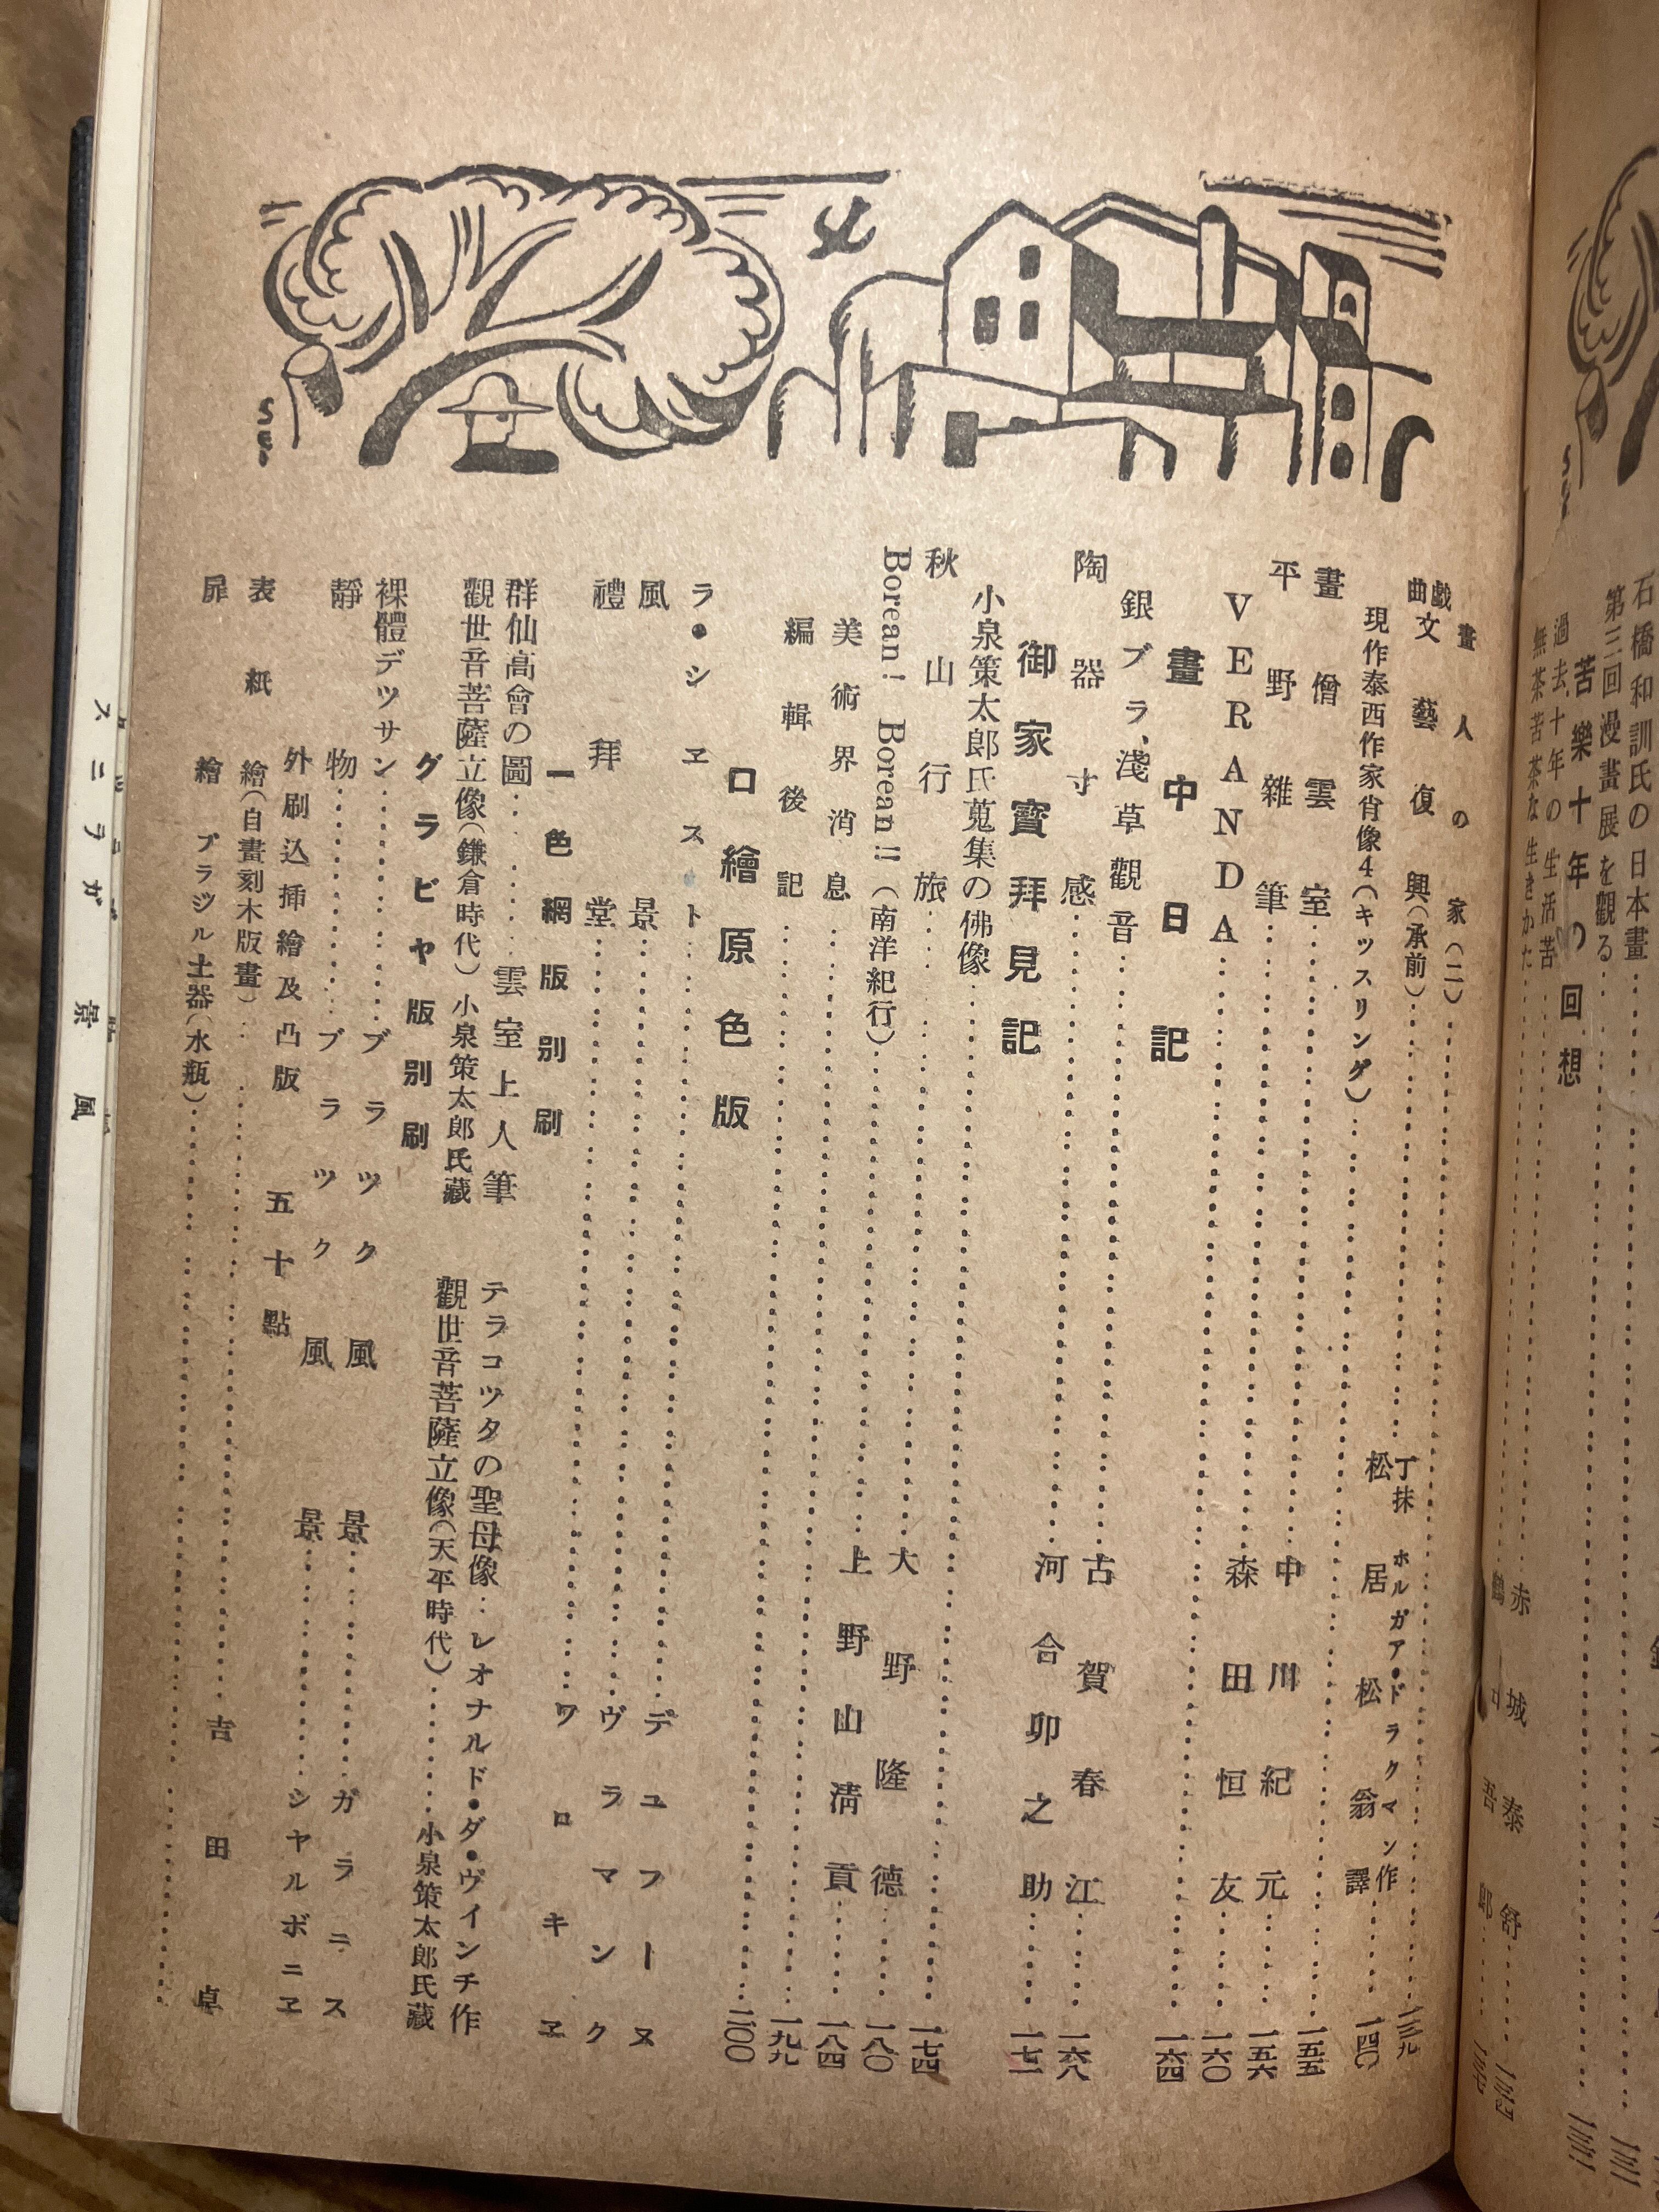 石橋和訓氏の日本畫
第三回漫畫展を觀る
苦樂十年の回想
過去十年の生活苦……赤城泰舒
無茶苦茶な生きかた……鶴 吾郎
畫人の家(二)……一三九
戯曲 文藝復興(承前)……丁抹 ホルガア・ドラクマン作 松居松翁譯……一四〇
現作泰西作家肖像4(キッスリング)……一五五
畫僧雲室……中川紀元……一五六
平野雜筆……森田恒友……一六〇
VERANDA……一六四
畫中日記
銀ブラ、淺草觀音……古賀春江……一六八
陶器寸感……河合卯之助……一七一
御家寶拜見記
小泉策太郎氏蒐集の佛像……一七四
秋山行旅……大野隆德……一八〇
Borean! Borean!!(南洋紀行)……上野山淸貢……一八四
美術界消息……一九九
編輯後記……二〇〇
口繪原色版
ラ・シヱスト……デユフーヌ
風景……ヴラマンク
禮拜堂……ワロキヱ
一色網版別刷
群仙高會の圖……雲室上人筆
テラコツタの聖母像……レオナルド・ダ・ヴインチ作
觀世音菩薩立像(鎌倉時代)小泉策太郎氏藏
觀世音菩薩立像(天平時代)……小泉策太郎氏藏
グラビヤ版別刷
裸體デツサン……ブラツク
風景……ガラニス
靜物……ブラツク
風景……シヤルボニヱ
外刷込挿繪及凸版 五十點
表紙繪(自畫刻木版畫)……吉田卓
扉繪 ブラジル土器(水瓶)……
風景
スニラガ